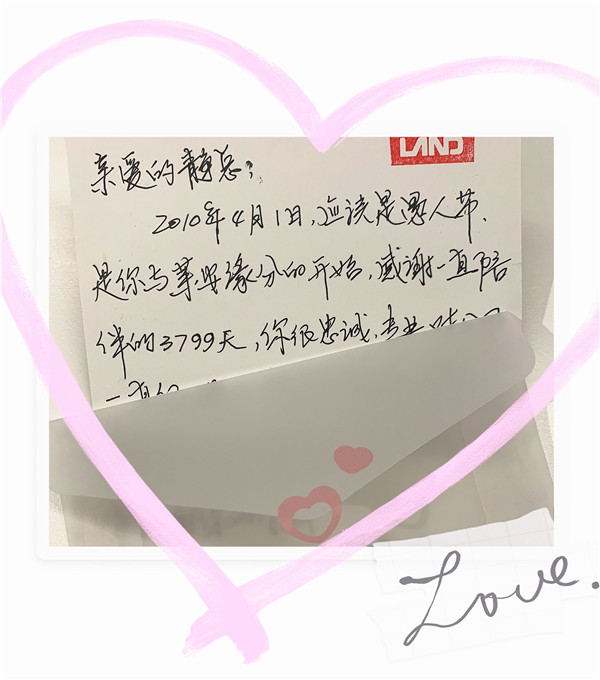 LAND
亲爱的静总:
2010年4月1日,应该是愚人节.
是你与莱安缘分的开始,感谢一直陪
伴的3799天,你很忠诚,专业
一直
Love.